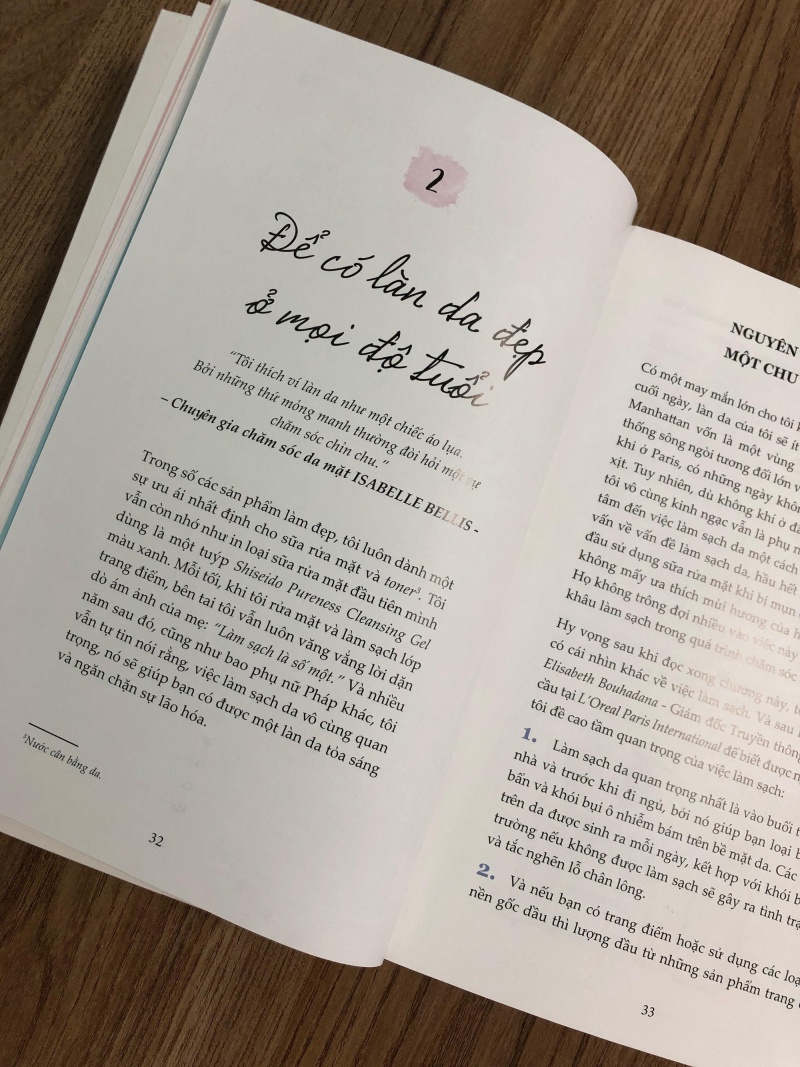 2
Để có làn da đẹp
ở mọi độ tuổi
“Tôi thích ví làn da như một chiếc áo lụa.
Bởi những thứ mỏng manh thường đòi hỏi một sự
chăm sóc chỉn chu.”
– Chuyên gia chăm sóc da mặt ISABELLE BELLIS -
Trong số các sản phẩm làm đẹp, tôi luôn dành một
sự ưu ái nhất định cho sữa rửa mặt và toner³. Tôi
vẫn còn nhớ như in loại sữa rửa mặt đầu tiên mình
dùng là một tuýp Shiseido Pureness Cleansing Gel
màu xanh. Mỗi tối, khi tôi rửa mặt và làm sạch lớp
trang điểm, bên tai tôi vẫn luôn văng vẳng lời dặn
dò ám ảnh của mẹ: “Làm sạch là số một.” Và nhiều
năm sau đó, cũng như bao phụ nữ Pháp khác, tôi
vẫn tự tin nói rằng, việc làm sạch da vô cùng quan
trọng, nó sẽ giúp bạn có được một làn da tỏa sáng
và ngăn chặn sự lão hóa.
³Nước cân bằng da.
32
NGUYÊN
MỘT CHU
Có một may mắn lớn cho tôi
cuối ngày, làn da của tôi sẽ ít
Manhattan vốn là một vùng
thống sông ngòi tương đối lớn
khi ở Paris, có những ngày
xịt. Tuy nhiên, dù không khí ở
tôi vô cùng kinh ngạc vẫn là phụ
tâm đến việc làm sạch da một cách
vấn về vấn đề làm sạch da, hầu hết
đầu sử dụng sữa rửa mặt khi bị mụn
không mấy ưa thích mùi hương của
Họ không trông đợi nhiều vào việc này
khâu làm sạch trong quá trình chăm sóc
Hy vọng sau khi đọc xong chương này,
có cái nhìn khác về việc làm sạch. Và sau
Elisabeth Bouhadana - Giám đốc Truyền thông
cầu tại L’Oreal Paris International để biết được
tôi đề cao tầm quan trọng của việc làm sạch:
1. Làm sạch da quan trọng nhất là vào buổi
nhà và trước khi đi ngủ, bởi nó giúp bạn loại
bẩn và khói bụi ô nhiễm bám trên bề mặt da. Các
trên da được sinh ra mỗi ngày, kết hợp với khói
trường nếu không được làm sạch sẽ gây ra tình
và tắc nghẽn lỗ chân lông.
2. Và nếu bạn có trang điểm hoặc sử dụng các
nền gốc dầu thì lượng dầu từ những sản phẩm trang
33